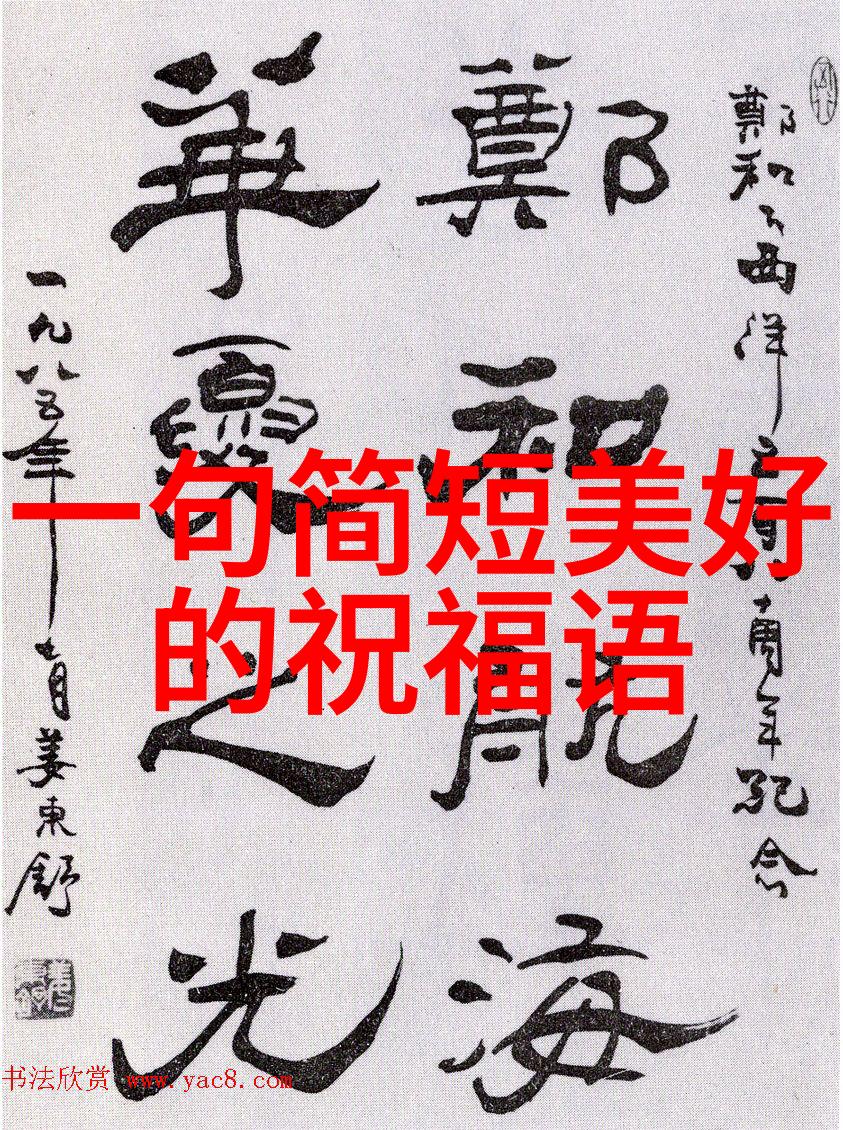 鄭和下西洋五百八十周年紀念
鄭和航海
華夏之光
一九八五年十月姜東舒
一句简短美好
的祝福语
书法欣赏 www.yac8.com